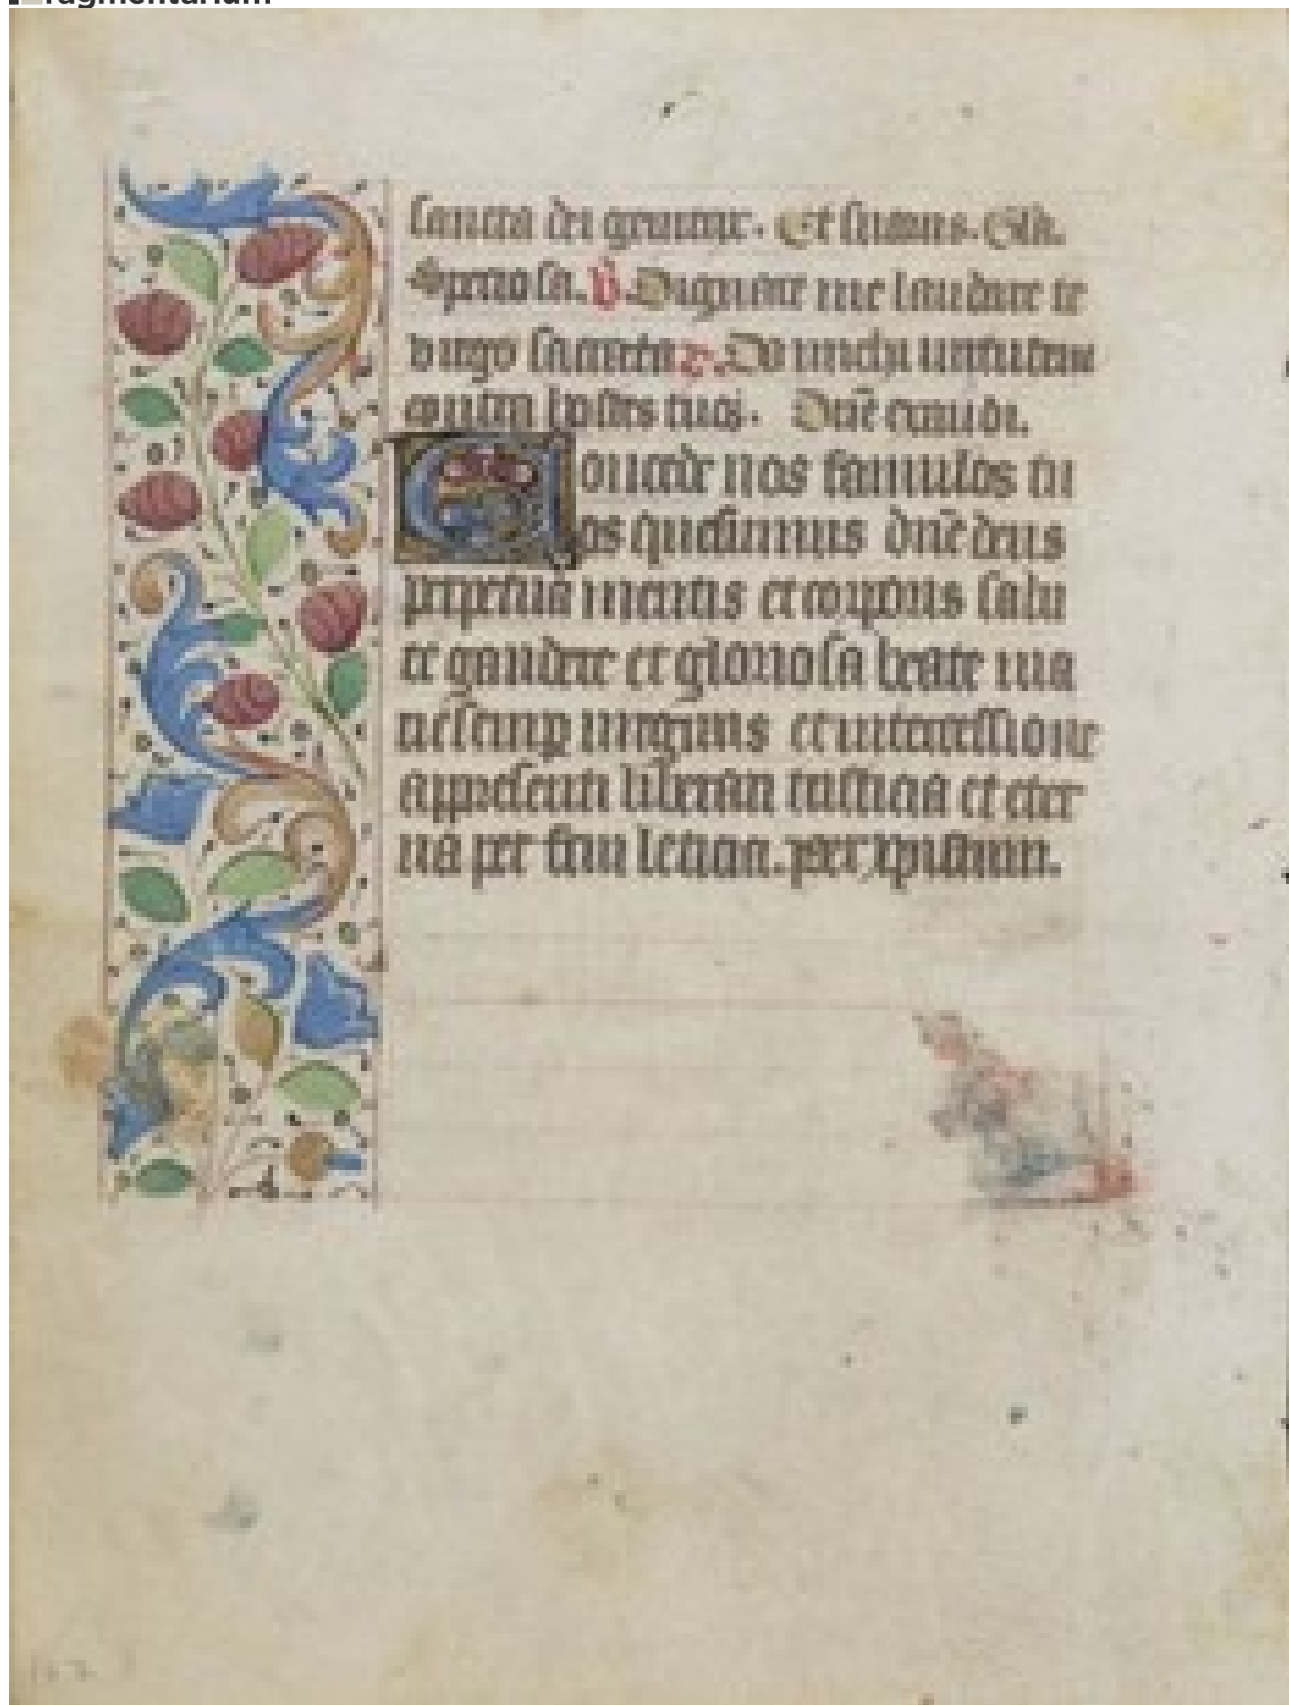 fragmentarium
sancta dei genitrix. Et suaues. Glã.
Speciosa. v̄. Dignare me laudare te
virgo sancta r. Da michi uirtutem
contra hostes tuos. Dñe exaudi.
Concede nos famulos tu
os quesumus dñe deus
perpetua mentis et corporis salu
te gaudere et gloriosa beate ma
rie semp uirginis et intercessione
a presenti liberari tristicia et eter
na per frui leticia. per xpistum.